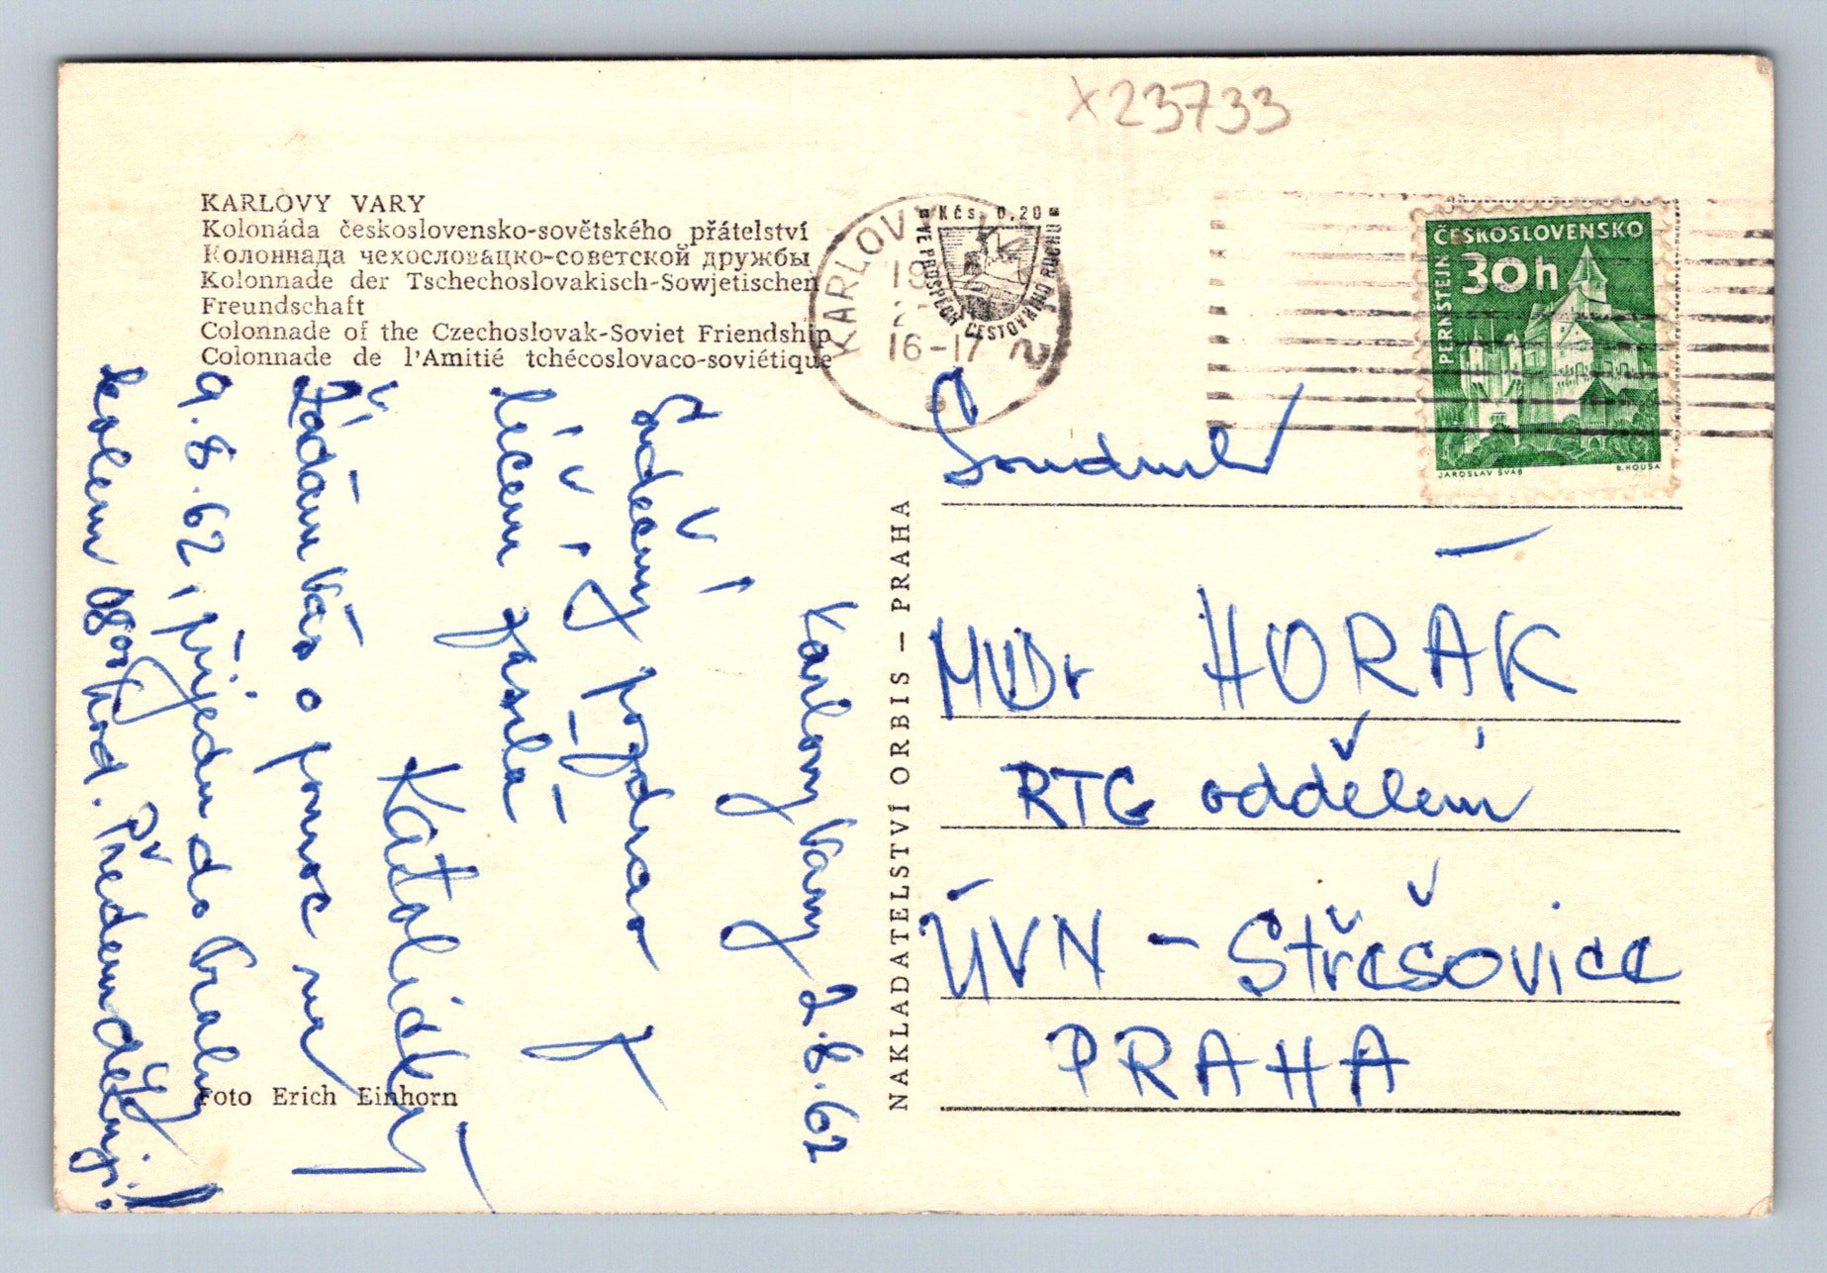 x23733
KARLOVY VARY
Kolonáda československo-sovětského přátelství
Колоннада чехословацко-советской дружбы
Kolonnade der Tschechoslovakisch-Sowjetischen
Freundschaft
Colonnade of the Czechoslovak-Soviet Friendship
Colonnade de l'Amitié tchécoslovaco-soviétique
KARLOVY
19
16-17
2
Kčs. 0,20
VE PROSPĚCH CESTOVNÍHO RUCHU
ČESKOSLOVENSKO
30h
PERNŠTEJN
JAROSLAV ŠVÁB
B. HOUSA
Karlovy Vary 2.8.62
Srdečný pozdrav z
léčení zasílá
Žádám Vás o pomoc
9.8.62, přijedu do Prahy
kolem hod. Předem děkuji!
Foto Erich Einhorn
NAKLADATELSTVÍ ORBIS – PRAHA
Soudruh
MUDr HORÁK
RTG oddělení
ÚVN - Střešovice
PRAHA